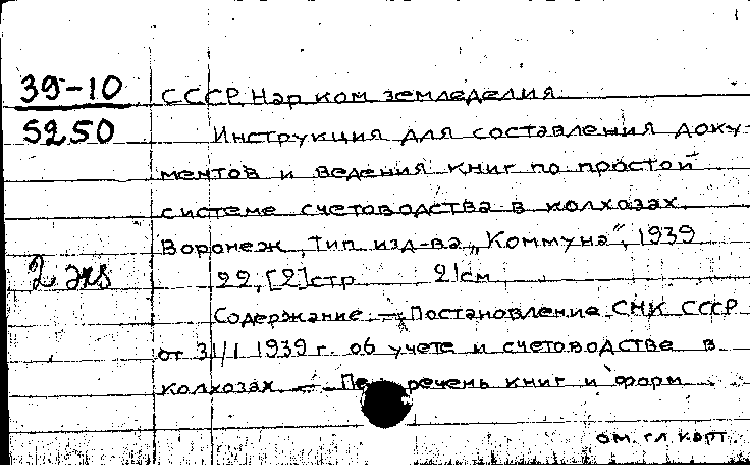 39-10
5250
СССР. Нар. ком. земледелия.
Инструкция для составления доку-
ментов и ведения книг по простой
системе счетоводства в колхозах.
Воронеж, тип. изд-ва „Коммуна", 1939
2 экз
22, [2] стр. 21 см
Содержание: — Постановление СНК СССР
от 31/I 1939 г. об учете и счетоводстве в
колхозах. — Перечень книг и форм
см. гл. карт.